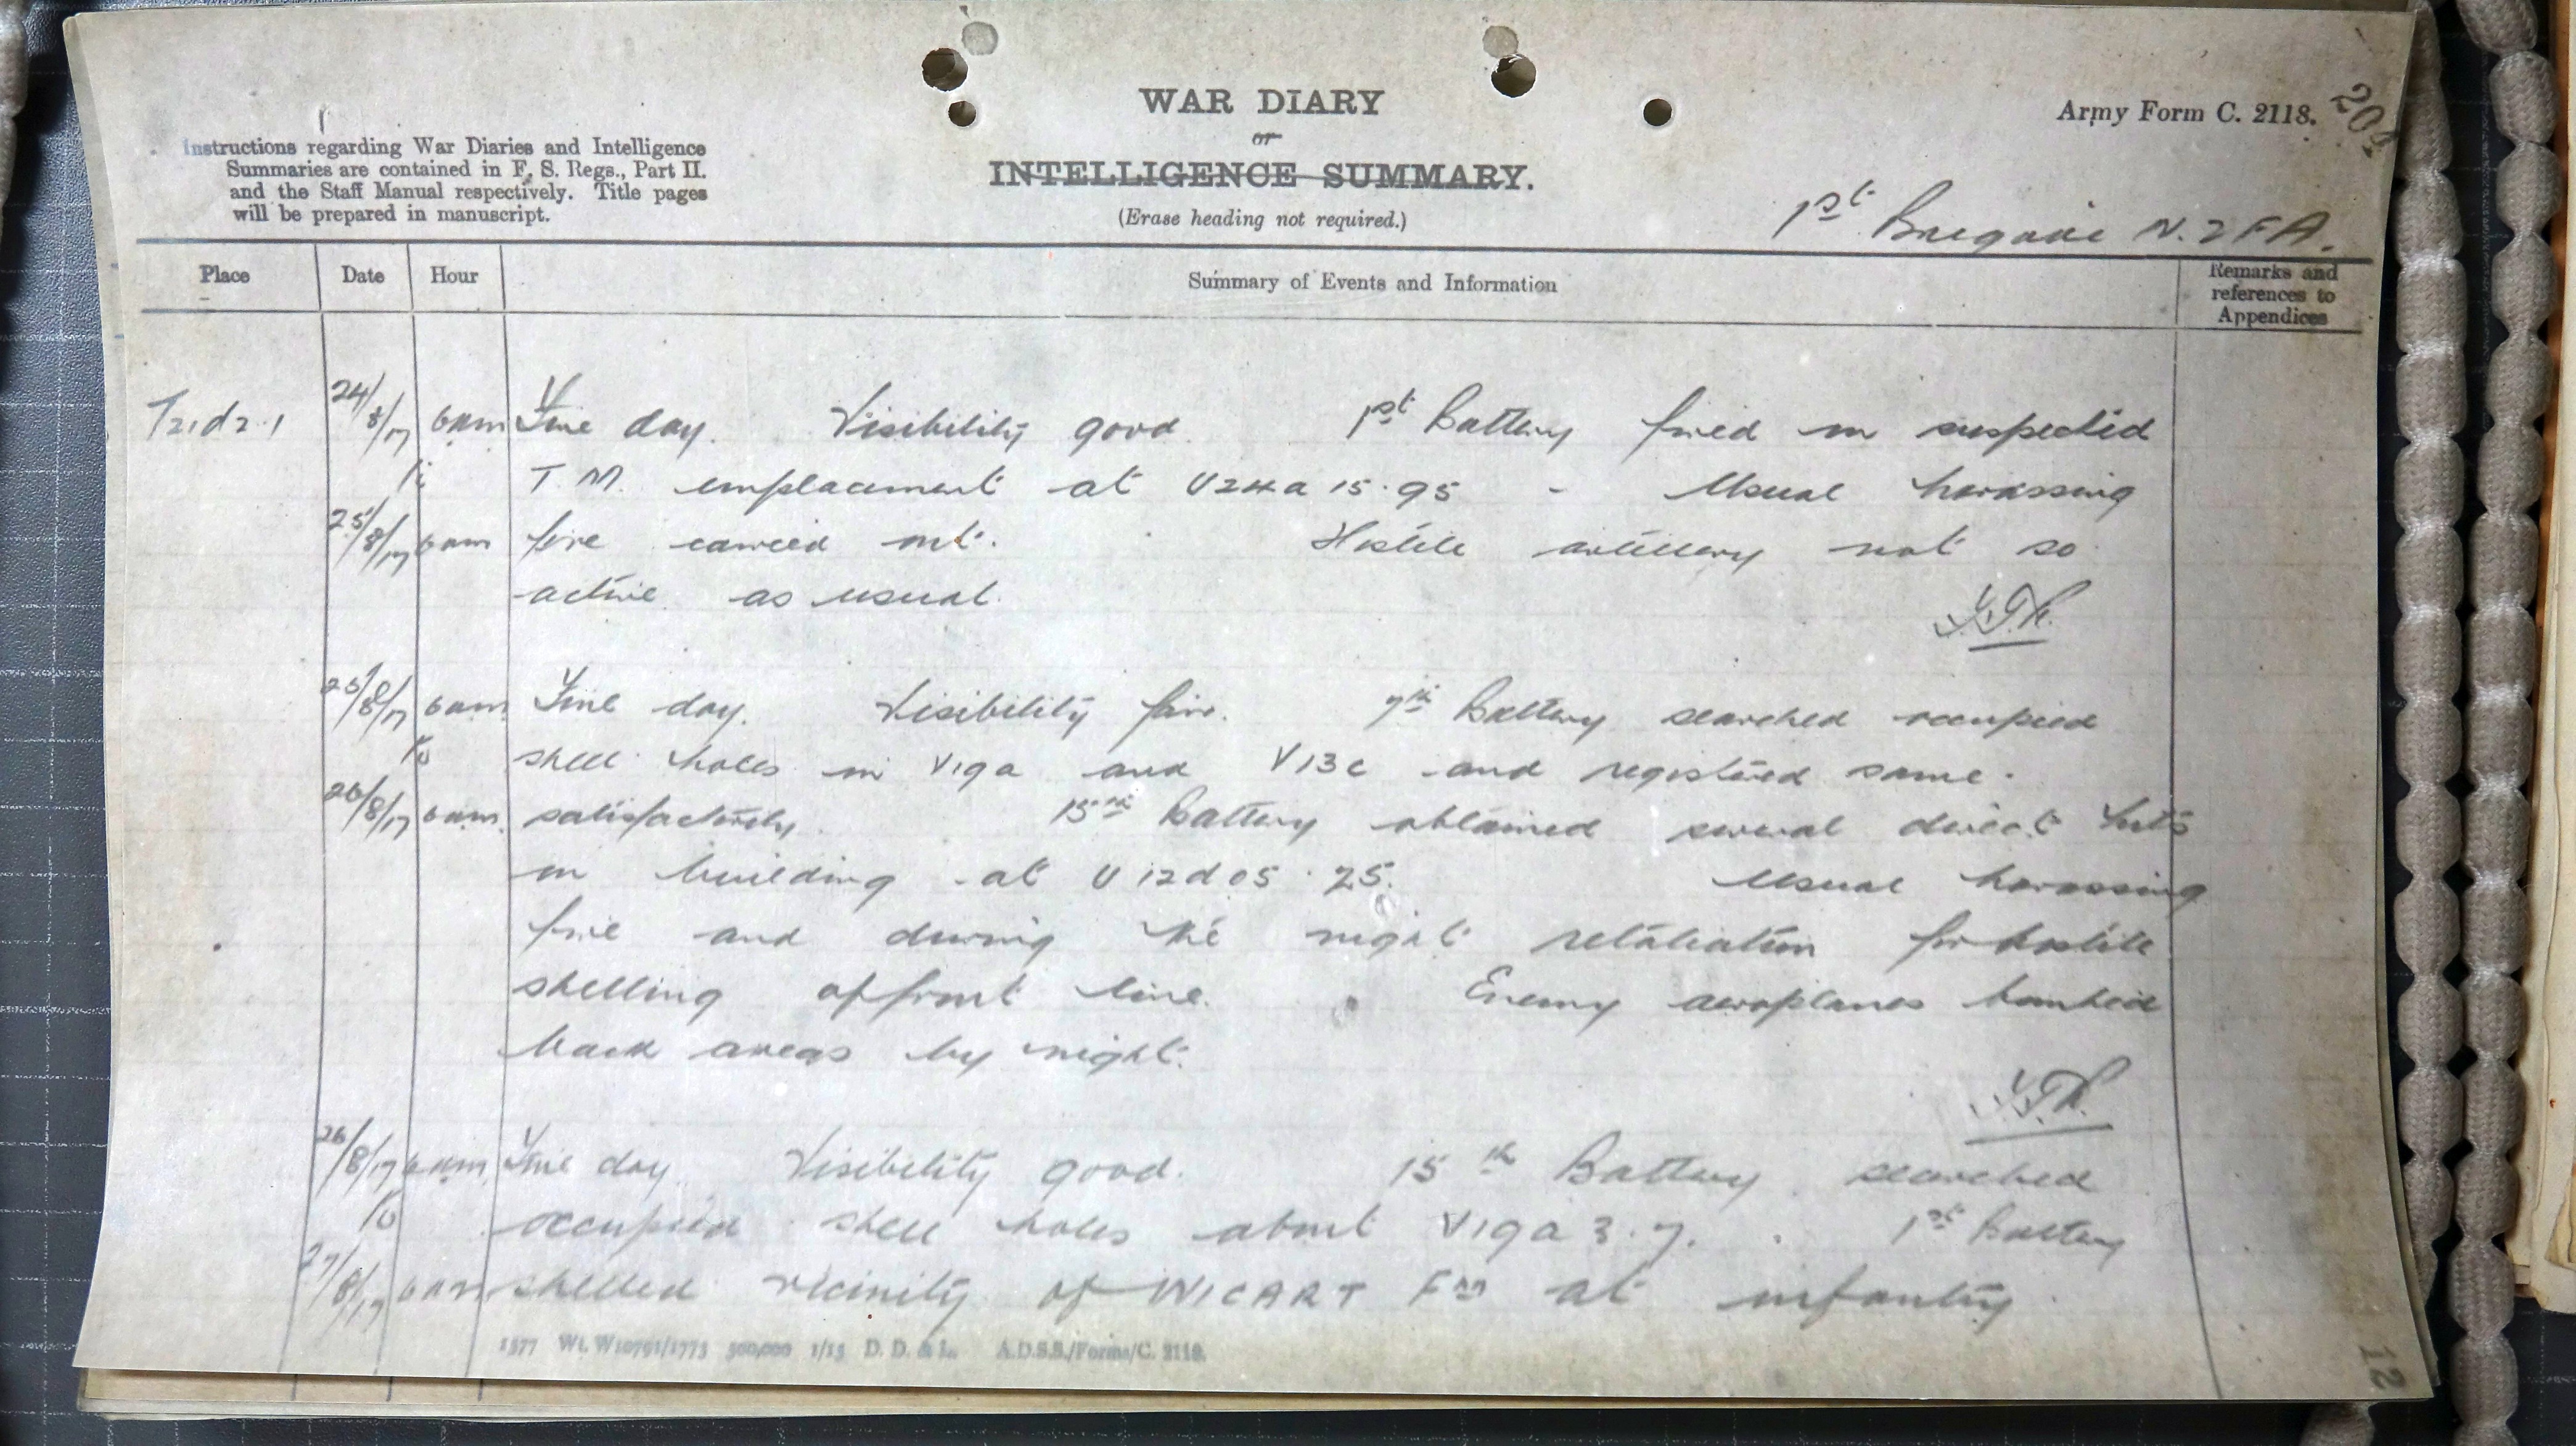 WAR DIARY
or
INTELLIGENCE SUMMARY.
(Erase heading not required.)
Army Form C. 2118.
Instructions regarding War Diaries and Intelligence
Summaries are contained in F. S. Regs., Part II.
and the Staff Manual respectively. Title pages
will be prepared in manuscript.
1st Brigade N.Z.F.A.
Place Date Hour Summary of Events and Information Remarks and references to Appendices
T21d2.1 24/8/17 6am Fine day. Visibility good. 1st Battery fired on suspected
to T.M. emplacement at U24a 15.95 - Usual harassing
25/8/17 6am fire carried out. Hostile artillery not so
active as usual.
25/8/17 6am Fine day. Visibility fair. 7th Battery searched occupied
to shell holes in V19a and V13c and registered same
26/8/17 6am satisfactorily. 15th Battery obtained several direct hits
on building at U12d05.25. Usual harassing
fire and during the night retaliation for hostile
shelling of front line. Enemy aeroplanes bombed
back areas by night.
26/8/17 6am Fine day. Visibility good. 15th Battery searched
to occupied shell holes about V19a3.7. 1st Battery
27/8/17 6am shelled vicinity of WICART Fm at infantry
1577 Wt. W10791/1773 500,000 1/15 D. D. & L. A.D.S.S./Forms/C. 2118.
12